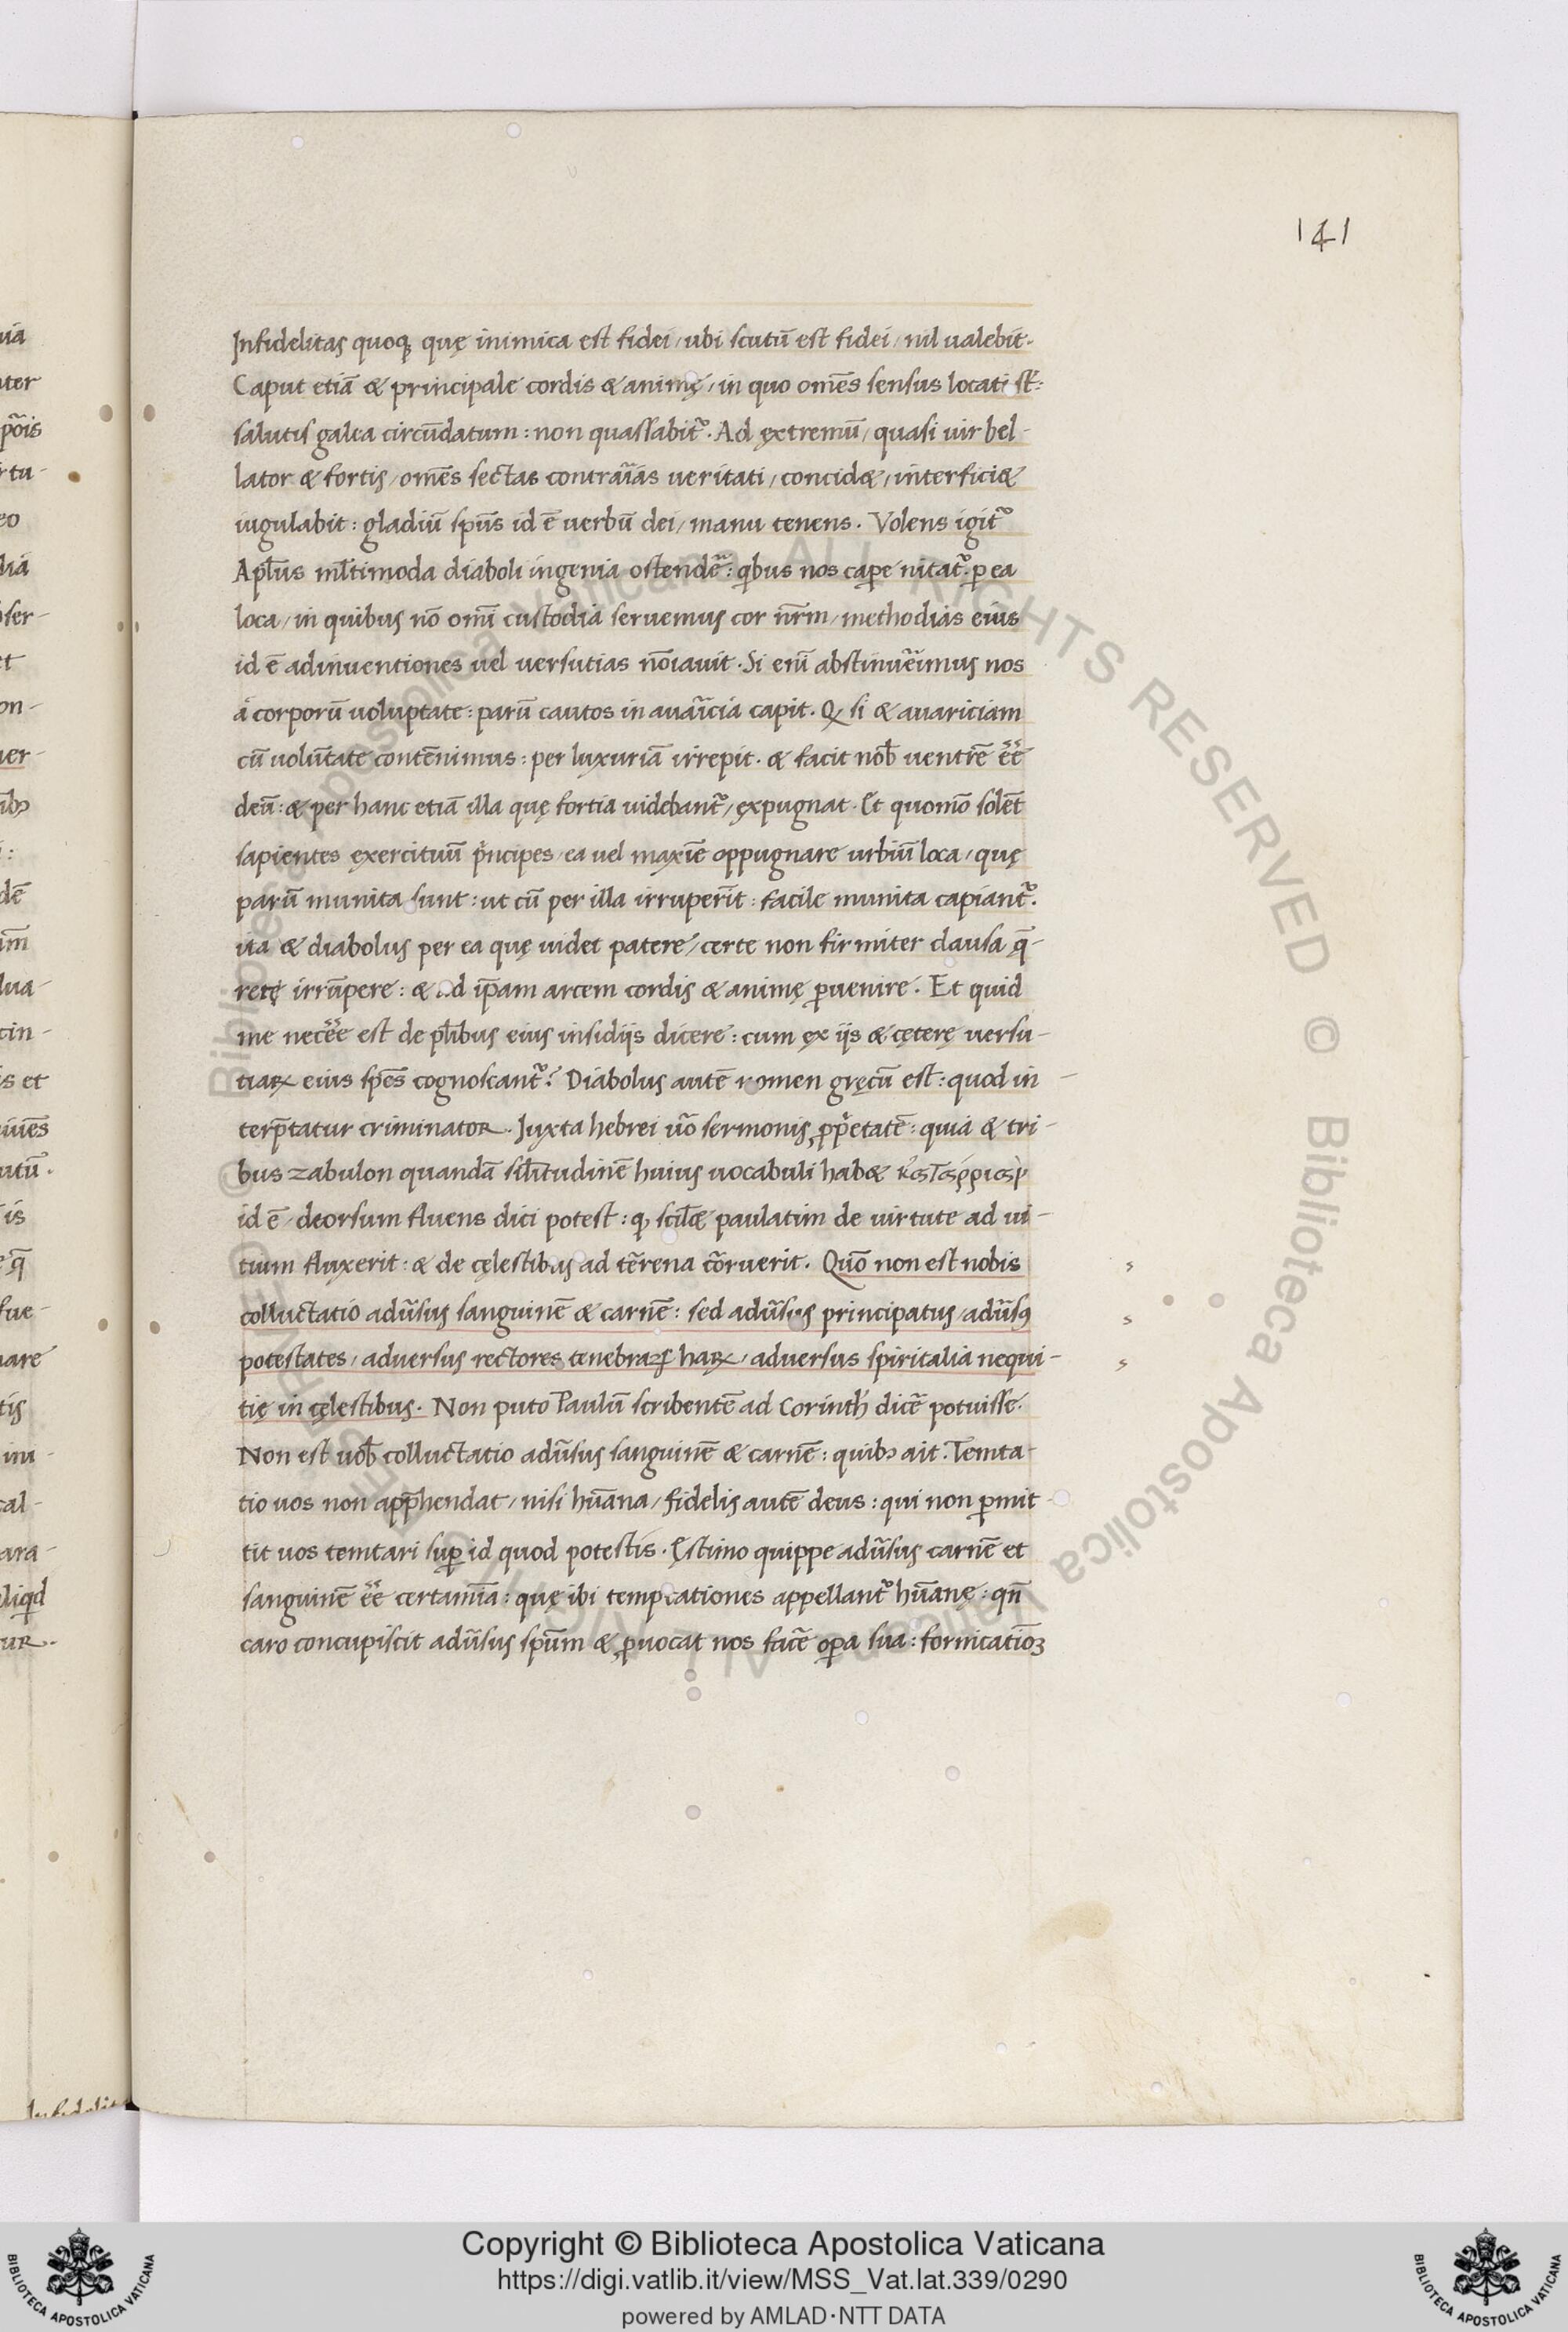 141
Infidelitas quoqꝫ quę inimica est fidei / ubi scutū est fidei / nil ualebit.
Caput etiā & principale cordis & animę / in quo om̄es sensus locati st̄:
salutis galea circūdatum : non quassabit᷑. Ad extremū / quasi uir bel-
lator & fortis / om̄es sectas contrar̄ias veritati / concid& / interfici&
iugulabit : gladiū sp̄us id ē uerbū dei / manu tenens. Volens igit᷑
Apl̄us ml̄timoda diaboli ingenia ostendē : qͥbus nos cap̄e nitat᷑. ꝑ ea
loca / in quibus nō om̄i custodia seruemus cor nr̄m / methodias eius
id ē adinuentiones uel uersutias nōiauit. Si enī abstinuēimus nos
á corporū uoluptate : parū cautos in auar̄icia capit. Qꝫ si & auariciam
cū uolūtate contēnimus : per luxuriā irrepit. & facit nob̄ uentrē eē̄
deū : & per hanc etiā illa quę fortia uidebant᷑ / expugnat. Et quomō solēt
sapientes exercituū pͥncipes / ea uel maxīe oppugnare urbiū loca / quę
parū munita sunt : ut cū per illa irruperīt : facile munita capiant᷑.
ita & diabolus per ea quę uidet patere / certe non firmiter clausa q̄-
retę irrūpere : & ad ip̄am arcem cordis & animę ꝑuenire. Et quid
me necēē est de pl̄ibus eius insidijs dicere : cum ex ijs & cęterę uersu-
tiaꝝ eius sp̄es cognoscant᷑? Diabolus autē nomen gręcū est : quod in
terp̄tatur criminator. Iuxta hebrei ūo sermonis ꝓpͥetatē : quia & tri-
bus zabulon quandā sil̄itudinē huius uocabuli hab&
id ē / deorsum fluens dici potest : qꝫ scil̄& paulatim de uirtute ad ui-
tium fluxerit : & de cęlestibus ad tērena cōruerit. Quō non est nobis
colluctatio adūsus sanguinē & carnē : sed adūsus principatus / adūsꝰ
potestates / aduersus rectores tenebraꝝ haꝝ / aduersus spiritalia nequi-
tię in cęlestibus. Non puto Paulū scribentē ad Corinth̄ dicē potuisse.
Non est uob̄ colluctatio adūsus sanguinē & carnē : quibꝰ ait. Temta-
tio uos non app̄hendat / nisi hūana / fidelis autē deus : qui non ꝑmit
tit uos temtari suꝑ id quod potestis. Ęstimo quippe adūsus carnē et
sanguinē eē̄ certamīa : quę ibi temptationes appellant᷑ hūanę : qn̄
caro concupiscit adūsus sp̄um & ꝓuocat nos facē oꝑa sua : fornicatiōꝫ
Copyright © Biblioteca Apostolica Vaticana
https://digi.vatlib.it/view/MSS_Vat.lat.339/0290
powered by AMLAD·NTT DATA